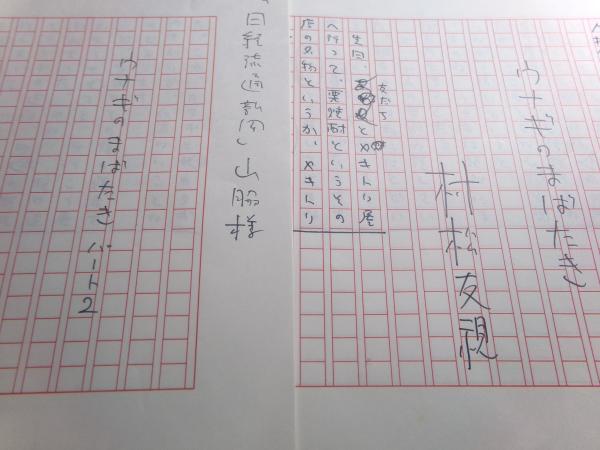 ウナギのまばたき
村松友視
友だち
先日、とやきとり屋
へ行って、栗焼酎というその
店の名物というか、やきとり
「日経流通新聞」山脇様
ウナギのまばたき パート2